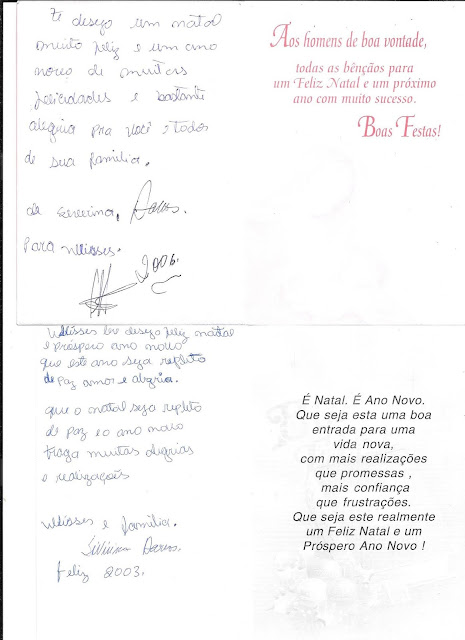 te desejo um natal
muito feliz e um ano
novo de muitas
felicidades e bastante
alegria pra você e todos
de sua familia.
de Severina,
Para Ulisses.
2006.
Aos homens de boa vontade,
todas as bênçãos para
um Feliz Natal e um próximo
ano com muito sucesso.
Boas Festas!
Ulisses lhe desejo feliz natal
e próspero ano novo
que este ano seja repleto
de Paz amor e alegria.
que o natal seja repleto
de paz e o ano novo
traga muitas alegrias
e realizações
Ulisses e família.
feliz 2003.
É Natal. É Ano Novo.
Que seja esta uma boa
entrada para uma
vida nova,
com mais realizações
que promessas ,
mais confiança
que frustrações.
Que seja este realmente
um Feliz Natal e um
Próspero Ano Novo !